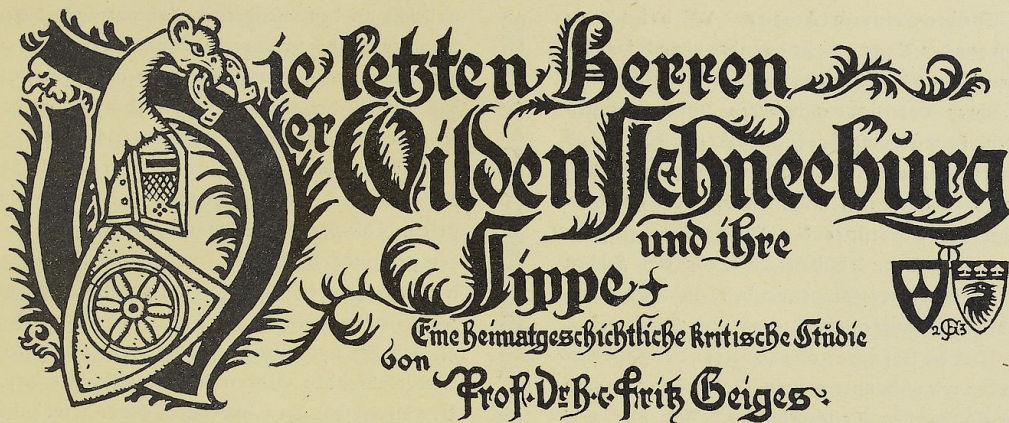 Die letzten Herren
der Wilden Schneeburg
und ihre
Sippe
Eine heimatgeschichtliche kritische Studie
von
Prof. Dr. h. c. Fritz Geiges.